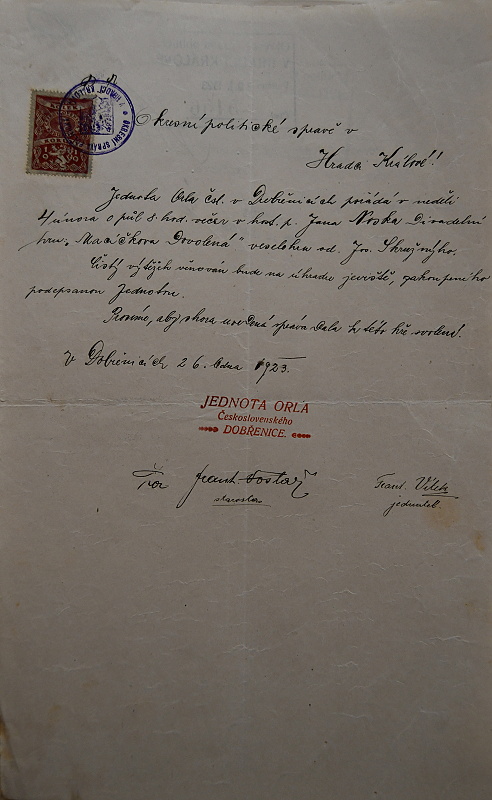 Okresní politické správě v
Hradci Králové!!
Jednota Orla čsl. v Dobřenicích pořádá v neděli
4/února o půl 8. hod. večer v host. p. Jana Noska Divadelní
hru „Macíčkova Dovolená" veselohra od Jos. Skružného.
Čistý výtěžek věnován bude na úhradu jeviště, zakoupeného
podepsanou Jednotou.
Prosíme, aby shora uvedená správa dala k této hře svolení!
V Dobřenicích 26. ledna 1923.
JEDNOTA ORLA
Československého
DOBŘENICE.
Frant.
starosta
Frant. Vítek
jednatel.
KOLEK
OKRESNÍ SPRÁVA